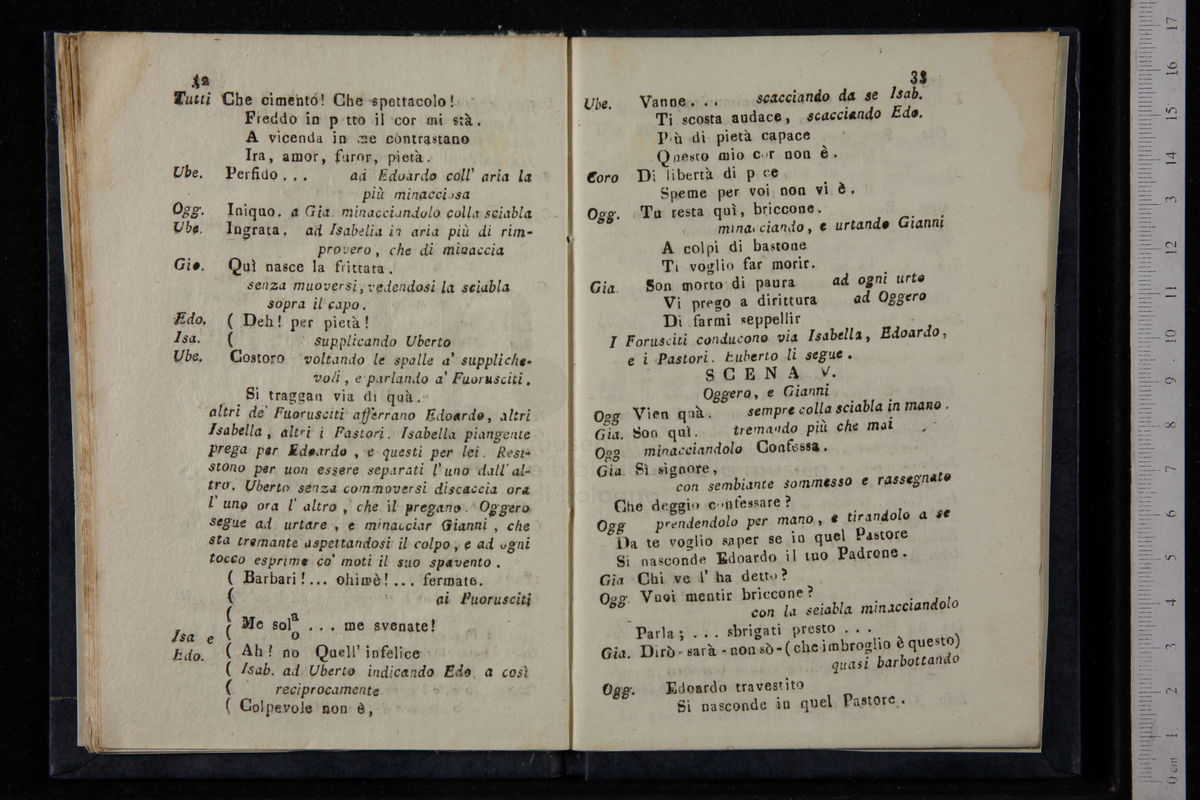 32
Tutti Che cimento! Che spettacolo!
Freddo in p tto il cor mi stà.
A vicenda in me contrastano
Ira, amor, furor, pietà.
Ube. Perfido... ad Edoardo coll' aria la
più minacciosa
Ogg. Iniquo. a Gia. minacciandolo colla sciabla
Ube. Ingrata. ad Isabella in aria più di rim-
provero, che di minaccia
Gia. Quì nasce la frittata.
senza muoversi, vedendosi la sciabla
sopra il capo.
Edo. ( Deh! per pietà!
Isa. ( supplicando Uberto
Ube. Costoro voltando le spalle a' suppliche-
voli, e parlando a' Fuorusciti.
Si traggan via di quà.
altri de' Fuorusciti afferrano Edoardo, altri
Isabella, altri i Pastori. Isabella piangente
prega per Edoardo, e questi per lei. Resi-
stono per uon essere separati l'uno dall' al-
tro. Uberto senza commoversi discaccia ora
l' uno ora l' altro, che il pregano. Oggero
segue ad urtare, e minacciar Gianni, che
sta tremante aspettandosi il colpo, e ad ogni
tocco esprime co' moti il suo spavento.
( Barbari!... ohimè!... fermate.
( ai Fuorusciti
( Me sol a/o ... me svenate!
Isa e (
Edo. ( Ah! no Quell' infelice
( Isab. ad Uberto indicando Edo. a così
( reciprocamente
( Colpevole non è,
33
Ube. Vanne... scacciando da se Isab.
Ti scosta audace, scacciando Edo.
Più di pietà capace
Questo mio cor non è.
Coro Di libertà di p ce
Speme per voi non vi è.
Ogg. Tu resta quì, briccone.
minacciando, e urtando Gianni
A colpi di bastone
Ti voglio far morir.
Gia. Son morto di paura ad ogni urto
Vi prego a dirittura ad Oggero
Di farmi seppellir
I Forusciti conducono via Isabella, Edoardo,
e i Pastori. Euberto li segue.
SCENA V.
Oggero, e Gianni
Ogg Vien quà. sempre colla sciabla in mano.
Gia. Son quì. tremando più che mai
Ogg minacciandolo Confessa.
Gia. Sì signore,
con sembiante sommesso e rassegnato
Che deggio confessare?
Ogg prendendolo per mano, e tirandolo a se
Da te voglio saper se in quel Pastore
Si nasconde Edoardo il tuo Padrone.
Gia Chi ve l' ha detto?
Ogg. Vuoi mentir briccone?
con la seiabla minacciandolo
Parla; ... sbrigati presto ...
Gia. Dirò - sarà - non sò - (che imbroglio è questo)
quasi barbottando
Ogg. Edoardo travestito
Si nasconde in quel Pastore.
0 cm 1 2 3 4 5 6 7 8 9 10 11 12 13 14 15 16 17